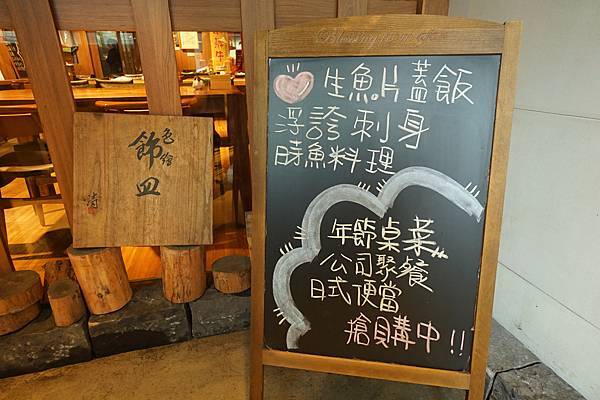 生魚片蓋飯
浮誇刺身
時魚料理
年節桌菜
公司聚餐
日式便當
搶購中!!
色繪
飾皿